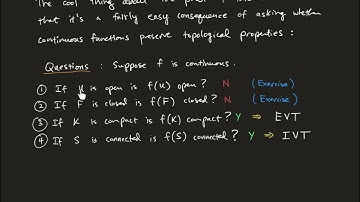 that it's a fairly easy consequence of asking whether
continuous functions preserve topological properties :
Questions : Suppose f is continuous.
① If U is open is f(U) open ? N (Exercise)
② If F is closed is f(F) closed ? N (Exercise)
③ If K is compact is f(K) compact ? Y ⇒ EVT
④ If S is connected is f(S) connected ? Y ⇒ IVT